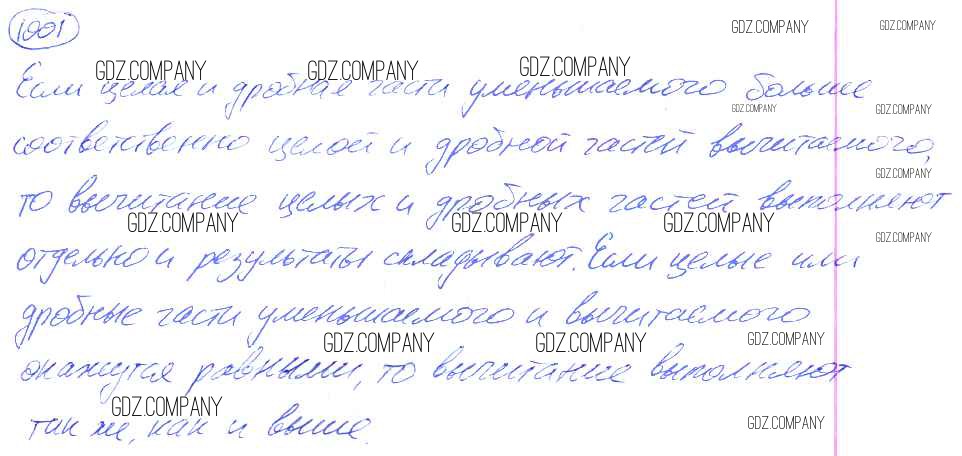 1001
GDZ.COMPANY GDZ.COMPANY
GDZ.COMPANY GDZ.COMPANY GDZ.COMPANY
Если целая и дробная части уменьшаемого больше
GDZ.COMPANY GDZ.COMPANY
соответственно целой и дробной частей вычитаемого,
GDZ.COMPANY
то вычитание целых и дробных частей выполняют
GDZ.COMPANY GDZ.COMPANY GDZ.COMPANY
GDZ.COMPANY
отдельно и результаты складывают. Если целые или
дробные части уменьшаемого и вычитаемого
GDZ.COMPANY GDZ.COMPANY GDZ.COMPANY
окажутся равными, то вычитание выполняют
GDZ.COMPANY
так же, как и выше.
GDZ.COMPANY